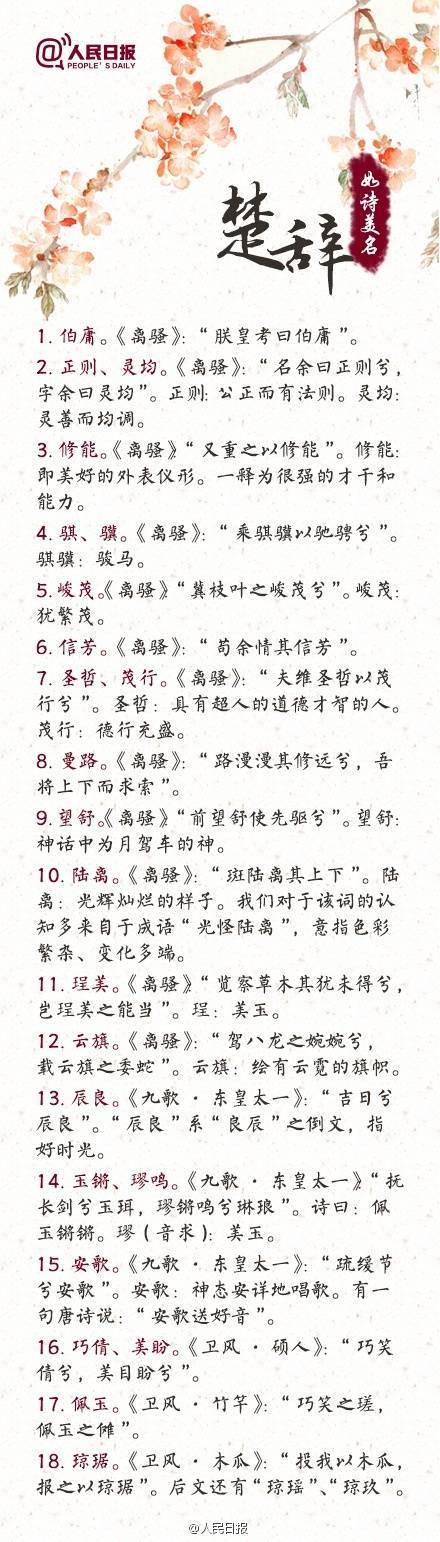 @人民日报
PEOPLE'S DAILY
楚辞
如诗美名
1. 伯庸。《离骚》：“朕皇考曰伯庸”。
2. 正则、灵均。《离骚》：“名余曰正则兮，
字余曰灵均”。正则：公正而有法则。灵均：
灵善而均调。
3. 修能。《离骚》“又重之以修能”。修能：
即美好的外表仪形。一释为很强的才干和
能力。
4. 骐、骥。《离骚》：“乘骐骥以驰骋兮”。
骐骥：骏马。
5. 峻茂。《离骚》“冀枝叶之峻茂兮”。峻茂：
犹繁茂。
6. 信芳。《离骚》：“苟余情其信芳”。
7. 圣哲、茂行。《离骚》：“夫维圣哲以茂
行兮”。圣哲：具有超人的道德才智的人。
茂行：德行充盛。
8. 曼路。《离骚》：“路漫漫其修远兮，吾
将上下而求索”。
9. 望舒。《离骚》“前望舒使先驱兮”。望舒：
神话中为月驾车的神。
10. 陆离。《离骚》：“斑陆离其上下”。陆
离：光辉灿烂的样子。我们对于该词的认
知多来自于成语“光怪陆离”，意指色彩
繁杂、变化多端。
11. 珵美。《离骚》“览察草木其犹未得兮，
岂珵美之能当”。珵：美玉。
12. 云旗。《离骚》：“驾八龙之婉婉兮，
载云旗之委蛇”。云旗：绘有云霓的旗帜。
13. 辰良。《九歌·东皇太一》：“吉日兮
辰良”。“辰良”系“良辰”之倒文，指
好时光。
14. 玉锵、璆鸣。《九歌·东皇太一》“抚
长剑兮玉珥，璆锵鸣兮琳琅”。诗曰：佩
玉锵锵。璆（音求）：美玉。
15. 安歌。《九歌·东皇太一》：“疏缓节
兮安歌”。安歌：神态安详地唱歌。有一
句唐诗说：“安歌送好音”。
16. 巧倩、美盼。《卫风·硕人》：“巧笑
倩兮，美目盼兮”。
17. 佩玉。《卫风·竹竿》：“巧笑之瑳，
佩玉之傩”。
18. 琼琚。《卫风·木瓜》：“投我以木瓜，
报之以琼琚”。后文还有“琼瑶”、“琼玖”。
@人民日报